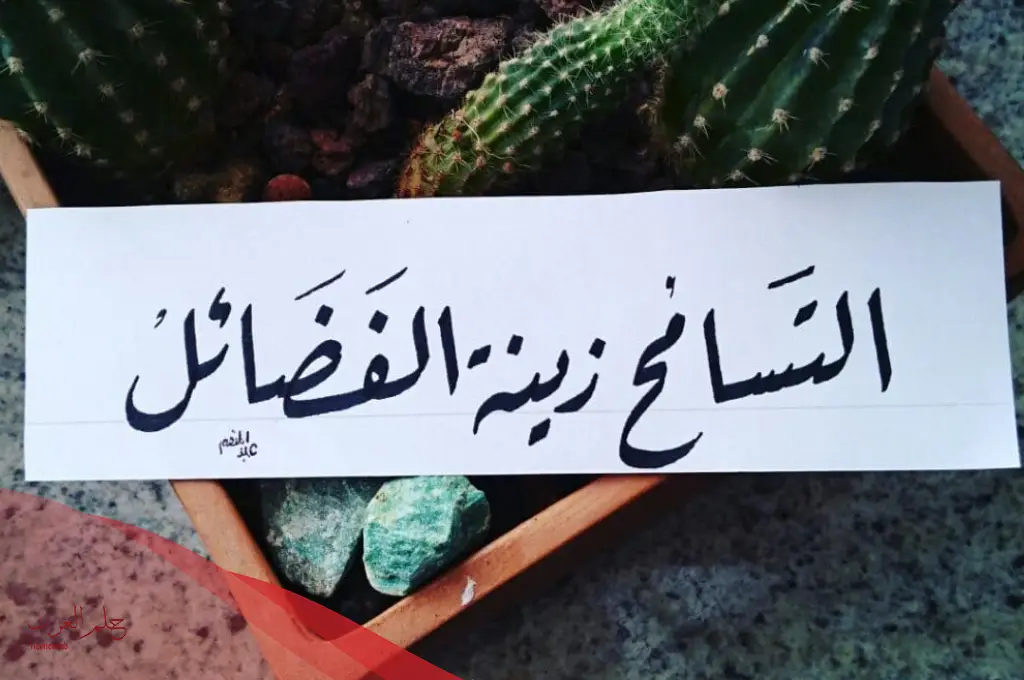 التَسامُح زينة الفَضَائلُ
عبد المنعم
حلم العرب